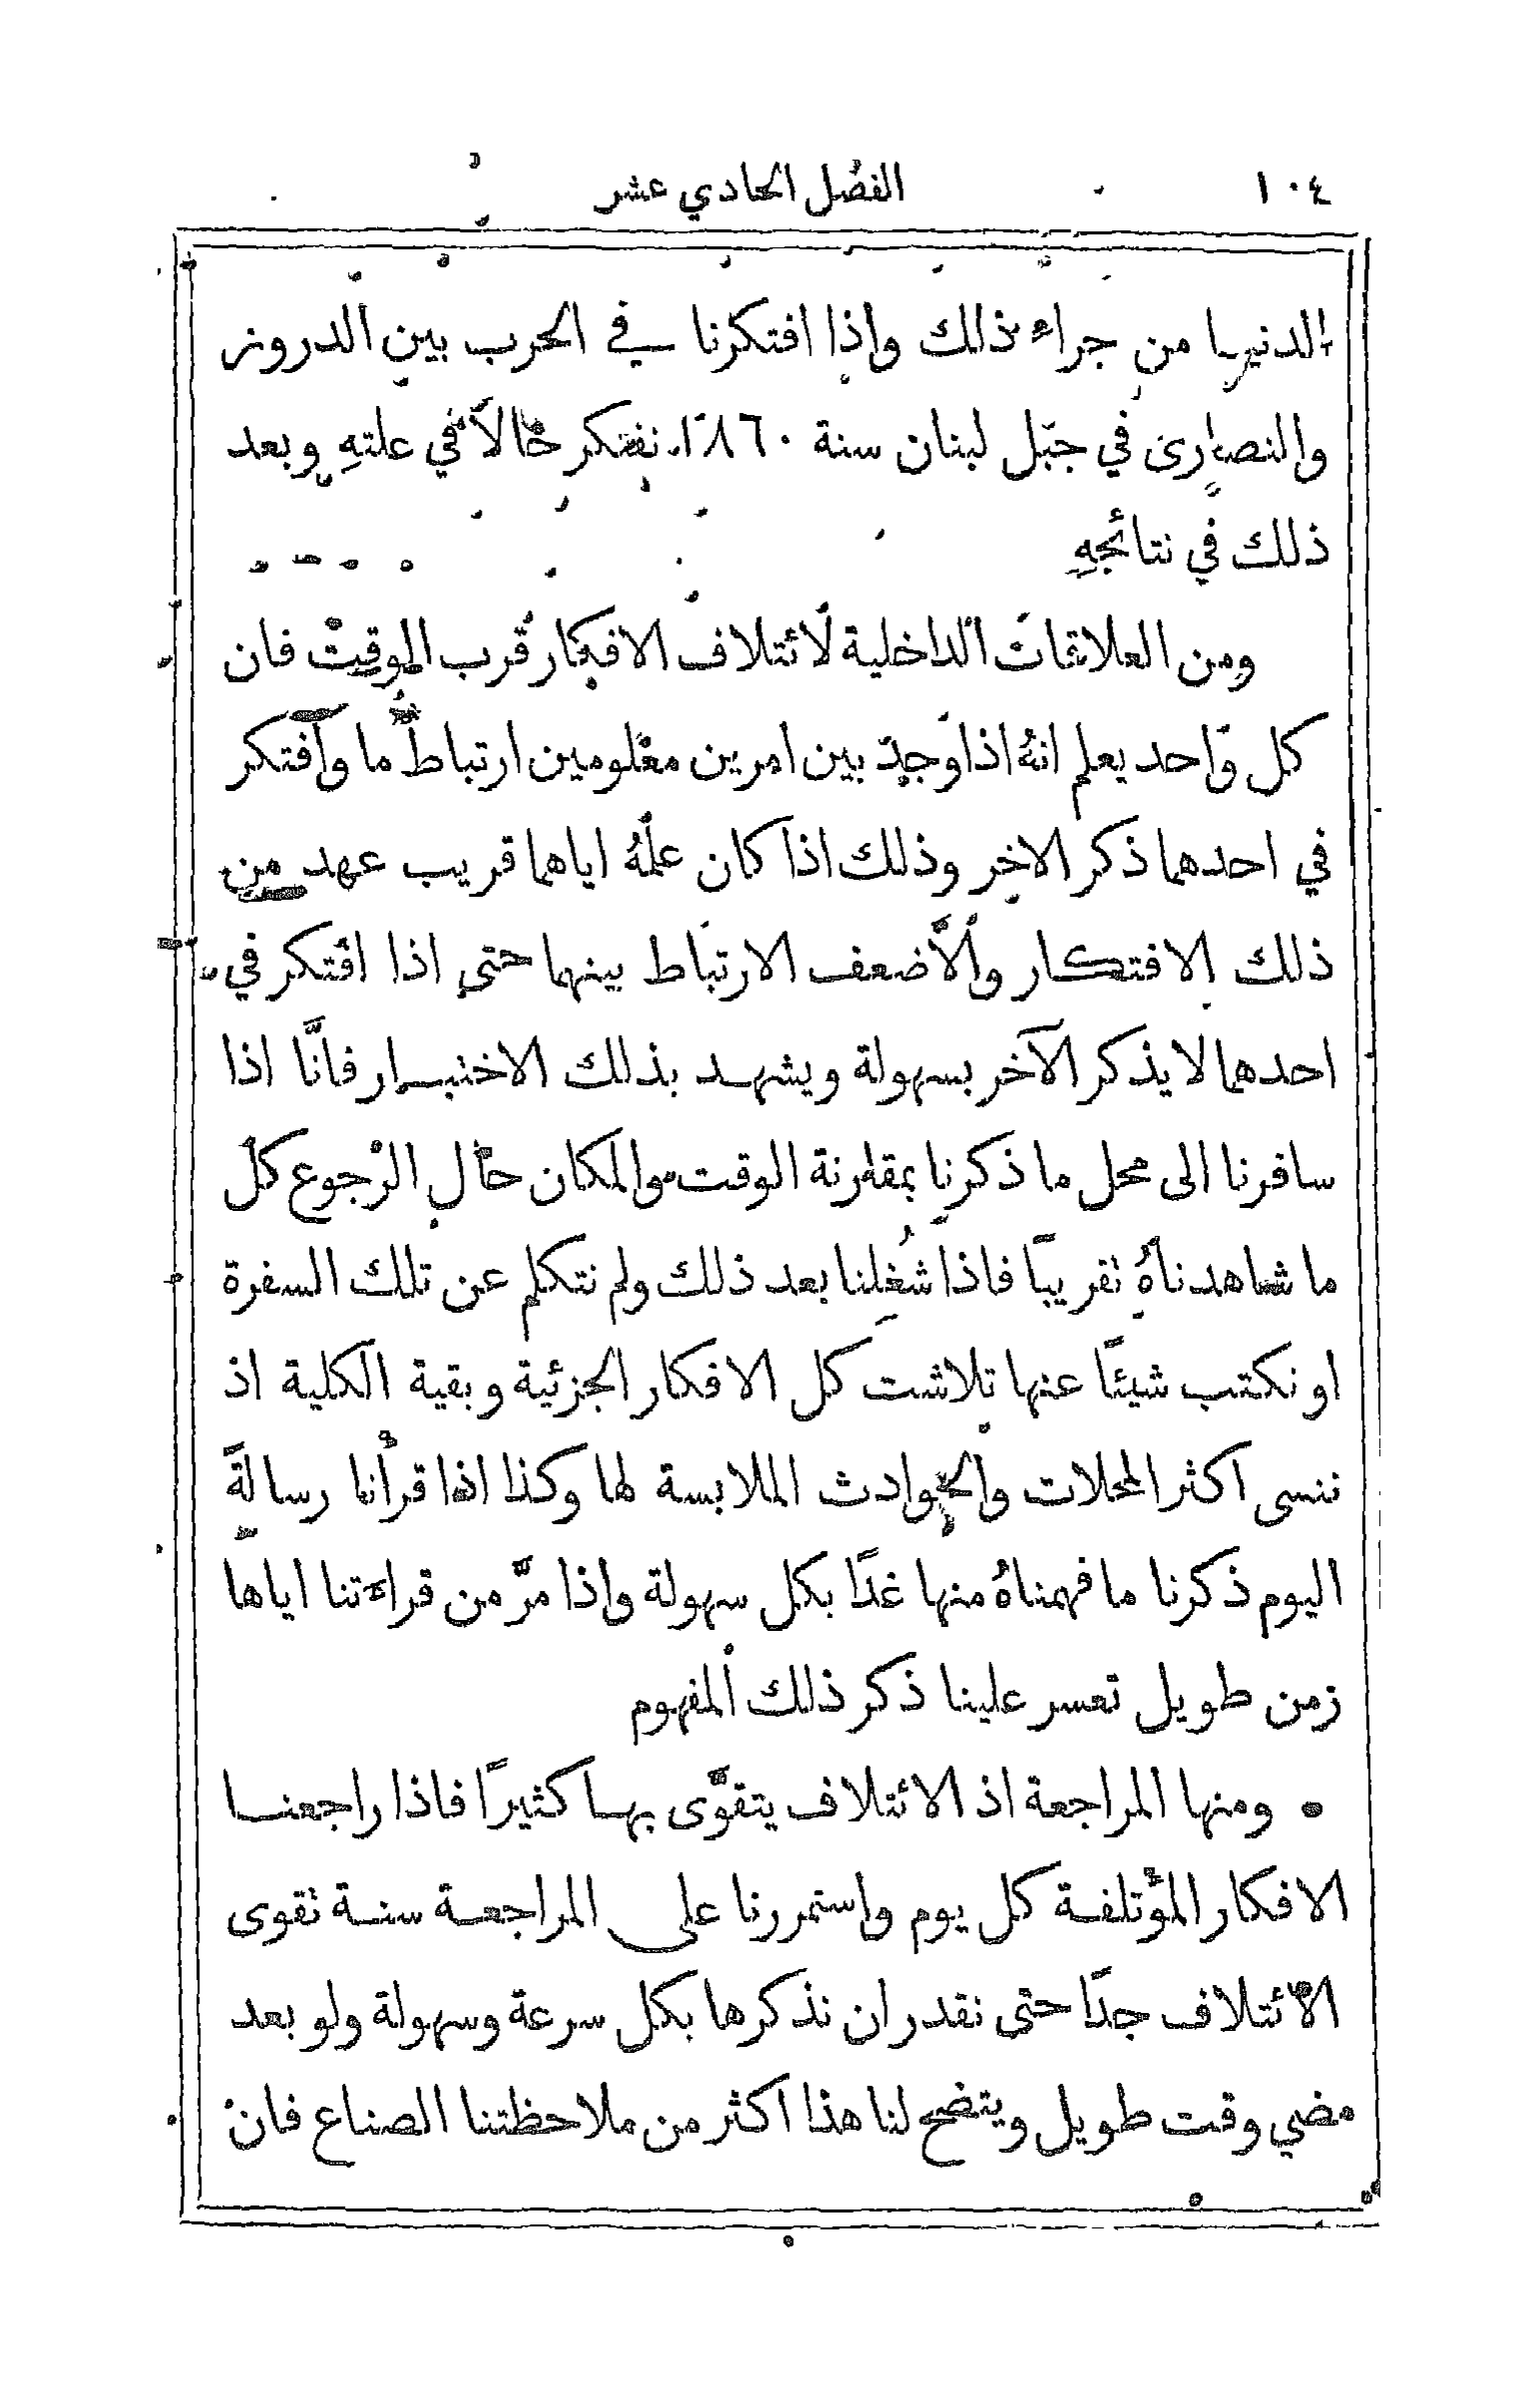 ١٠٤ الفصل الحادي عشر
الدنيا من جراء ذلك واذا افتكرنا في الحرب بين الدروز
والنصارى في جبل لبنان سنة ١٨٦٠ نفتكر حالاً في علتهِ وبعد
ذلك في نتائجهِ
ومن العلاقات الداخلية لائتلاف الافكار قرب الوقت فان
كل واحد يعلم انهُ اذا وجد بين امرين معلومين ارتباط ما وافتكر
في احدهما ذكر الاخر وذلك اذا كان علمهُ اياهما قريب عهد من
ذلك الافتكار والاَّ ضعف الارتباط بينهما حتى اذا افتكر في
احدهما لا يذكر الآخر بسهولة ويشهد بذلك الاختبار فانَّا اذا
سافرنا الى محل ما ذكرنا بمقارنة الوقت والمكان حال الرجوع كل
ما شاهدناهُ تقريبًا فاذا شُغلنا بعد ذلك ولم نتكلم عن تلك السفرة
او نكتب شيئًا عنها تلاشت كل الافكار الجزئية وبقية الكلية اذ
ننسى اكثر المحلات والحوادث الملابسة لها وكذا اذا قرأنا رسالةً
اليوم ذكرنا ما فهمناهُ منها غدًا بكل سهولة واذا مرَّ من قراءتنا اياها
زمن طويل تعسر علينا ذكر ذلك المفهوم
• ومنها المراجعة اذ الائتلاف يتقوَّى بها كثيرًا فاذا راجعنا
الافكار المؤتلفة كل يوم واستمررنا على المراجعة سنة تقوى
الائتلاف جدًا حتى نقدر ان نذكرها بكل سرعة وسهولة ولو بعد
مضي وقت طويل ويتضح لنا هذا اكثر من ملاحظتنا الصناع فان